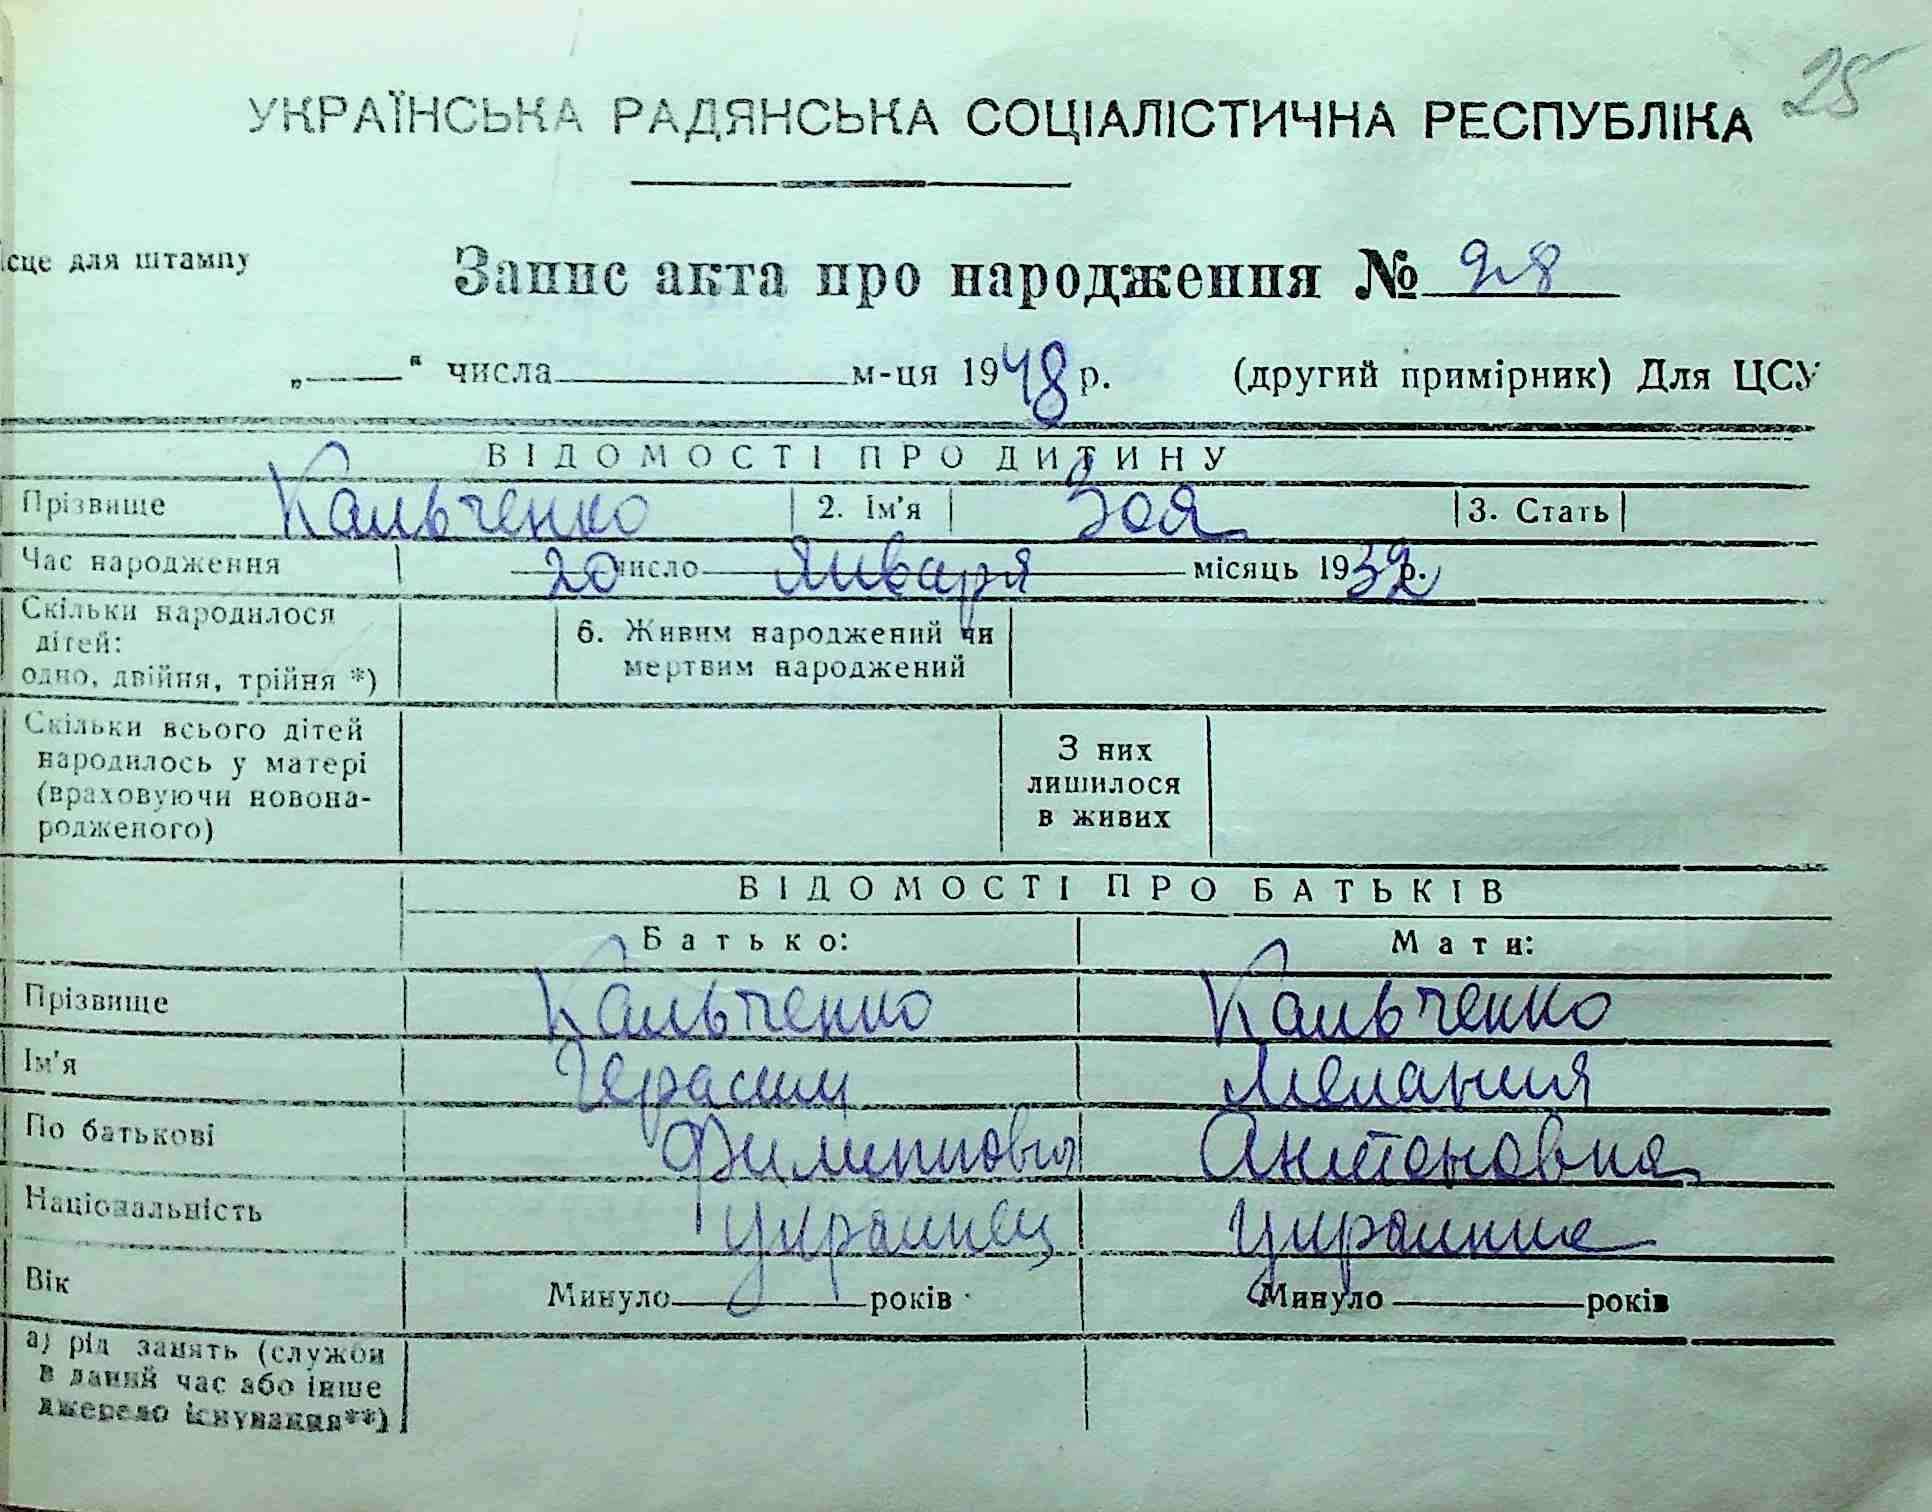 25
УКРАЇНСЬКА РАДЯНСЬКА СОЦІАЛІСТИЧНА РЕСПУБЛІКА
ісце для штампу
Запис акта про народження № 28
„ “ числа м-ця 1948 р. (другий примірник) Для ЦСУ
ВІДОМОСТІ ПРО ДИТИНУ
Прізвище Кальченко 2. Ім'я Зоя 3. Стать
Час народження 20 число января місяць 1939 р.
Скільки народилося дітей: одно, двійня, трійня *)
6. Живим народжений чи мертвим народжений
Скільки всього дітей народилось у матері (враховуючи новона-родженого)
З них лишилося в живих
ВІДОМОСТІ ПРО БАТЬКІВ
Батько: Мати:
Прізвище Кальченко Кальченко
Ім'я Герасим Мелания
По батькові Филиппович Антоновна
Національність украинец
Вік Минуло років Минуло років
а) рід занять (служби
в даний час або інше
джерело існування**)